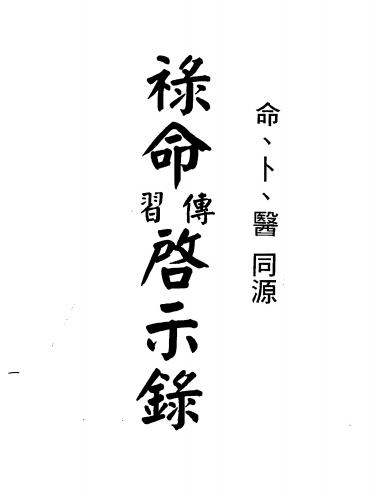 命、卜、醫 同源
祿命傳習啓示錄
一